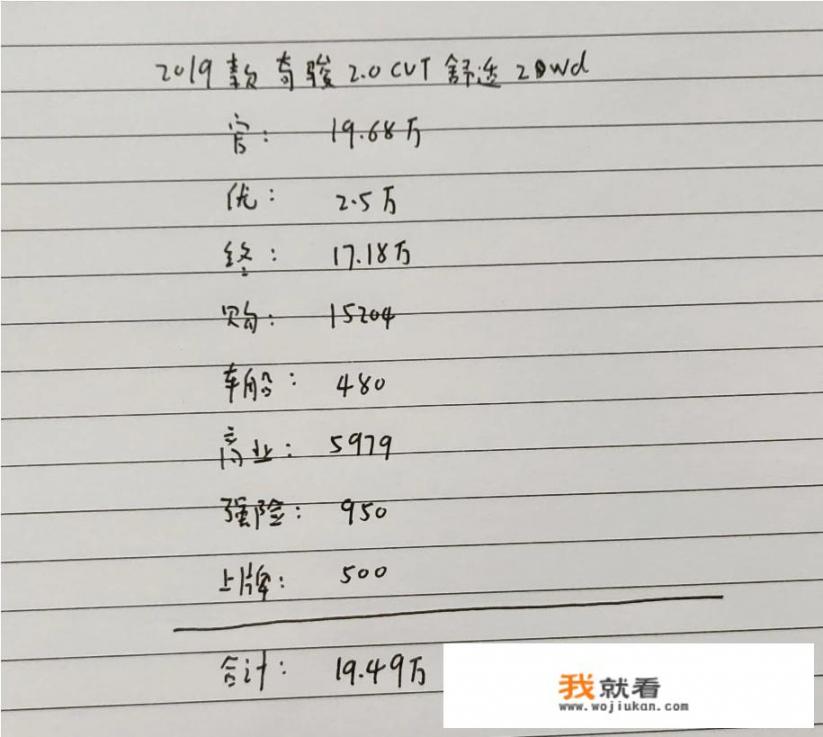 2019款奇骏2.0CVT舒适2Wd
官: 19.68万
优: 2.5万
终: 17.18万
购: 15204
车船: 480
商业: 5979
强险: 950
上牌: 500
合计: 19.49万
我就看
www.wojiukan.com